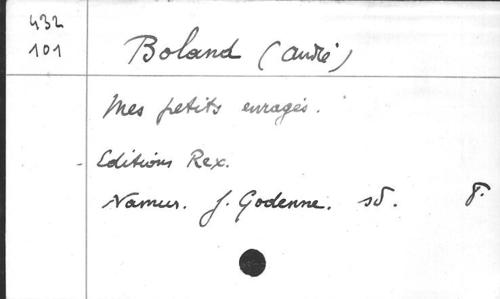 432
101
Boland (André)
Mes petits enragés.
Editions Rex.
Namur. J. Godenne. sd.